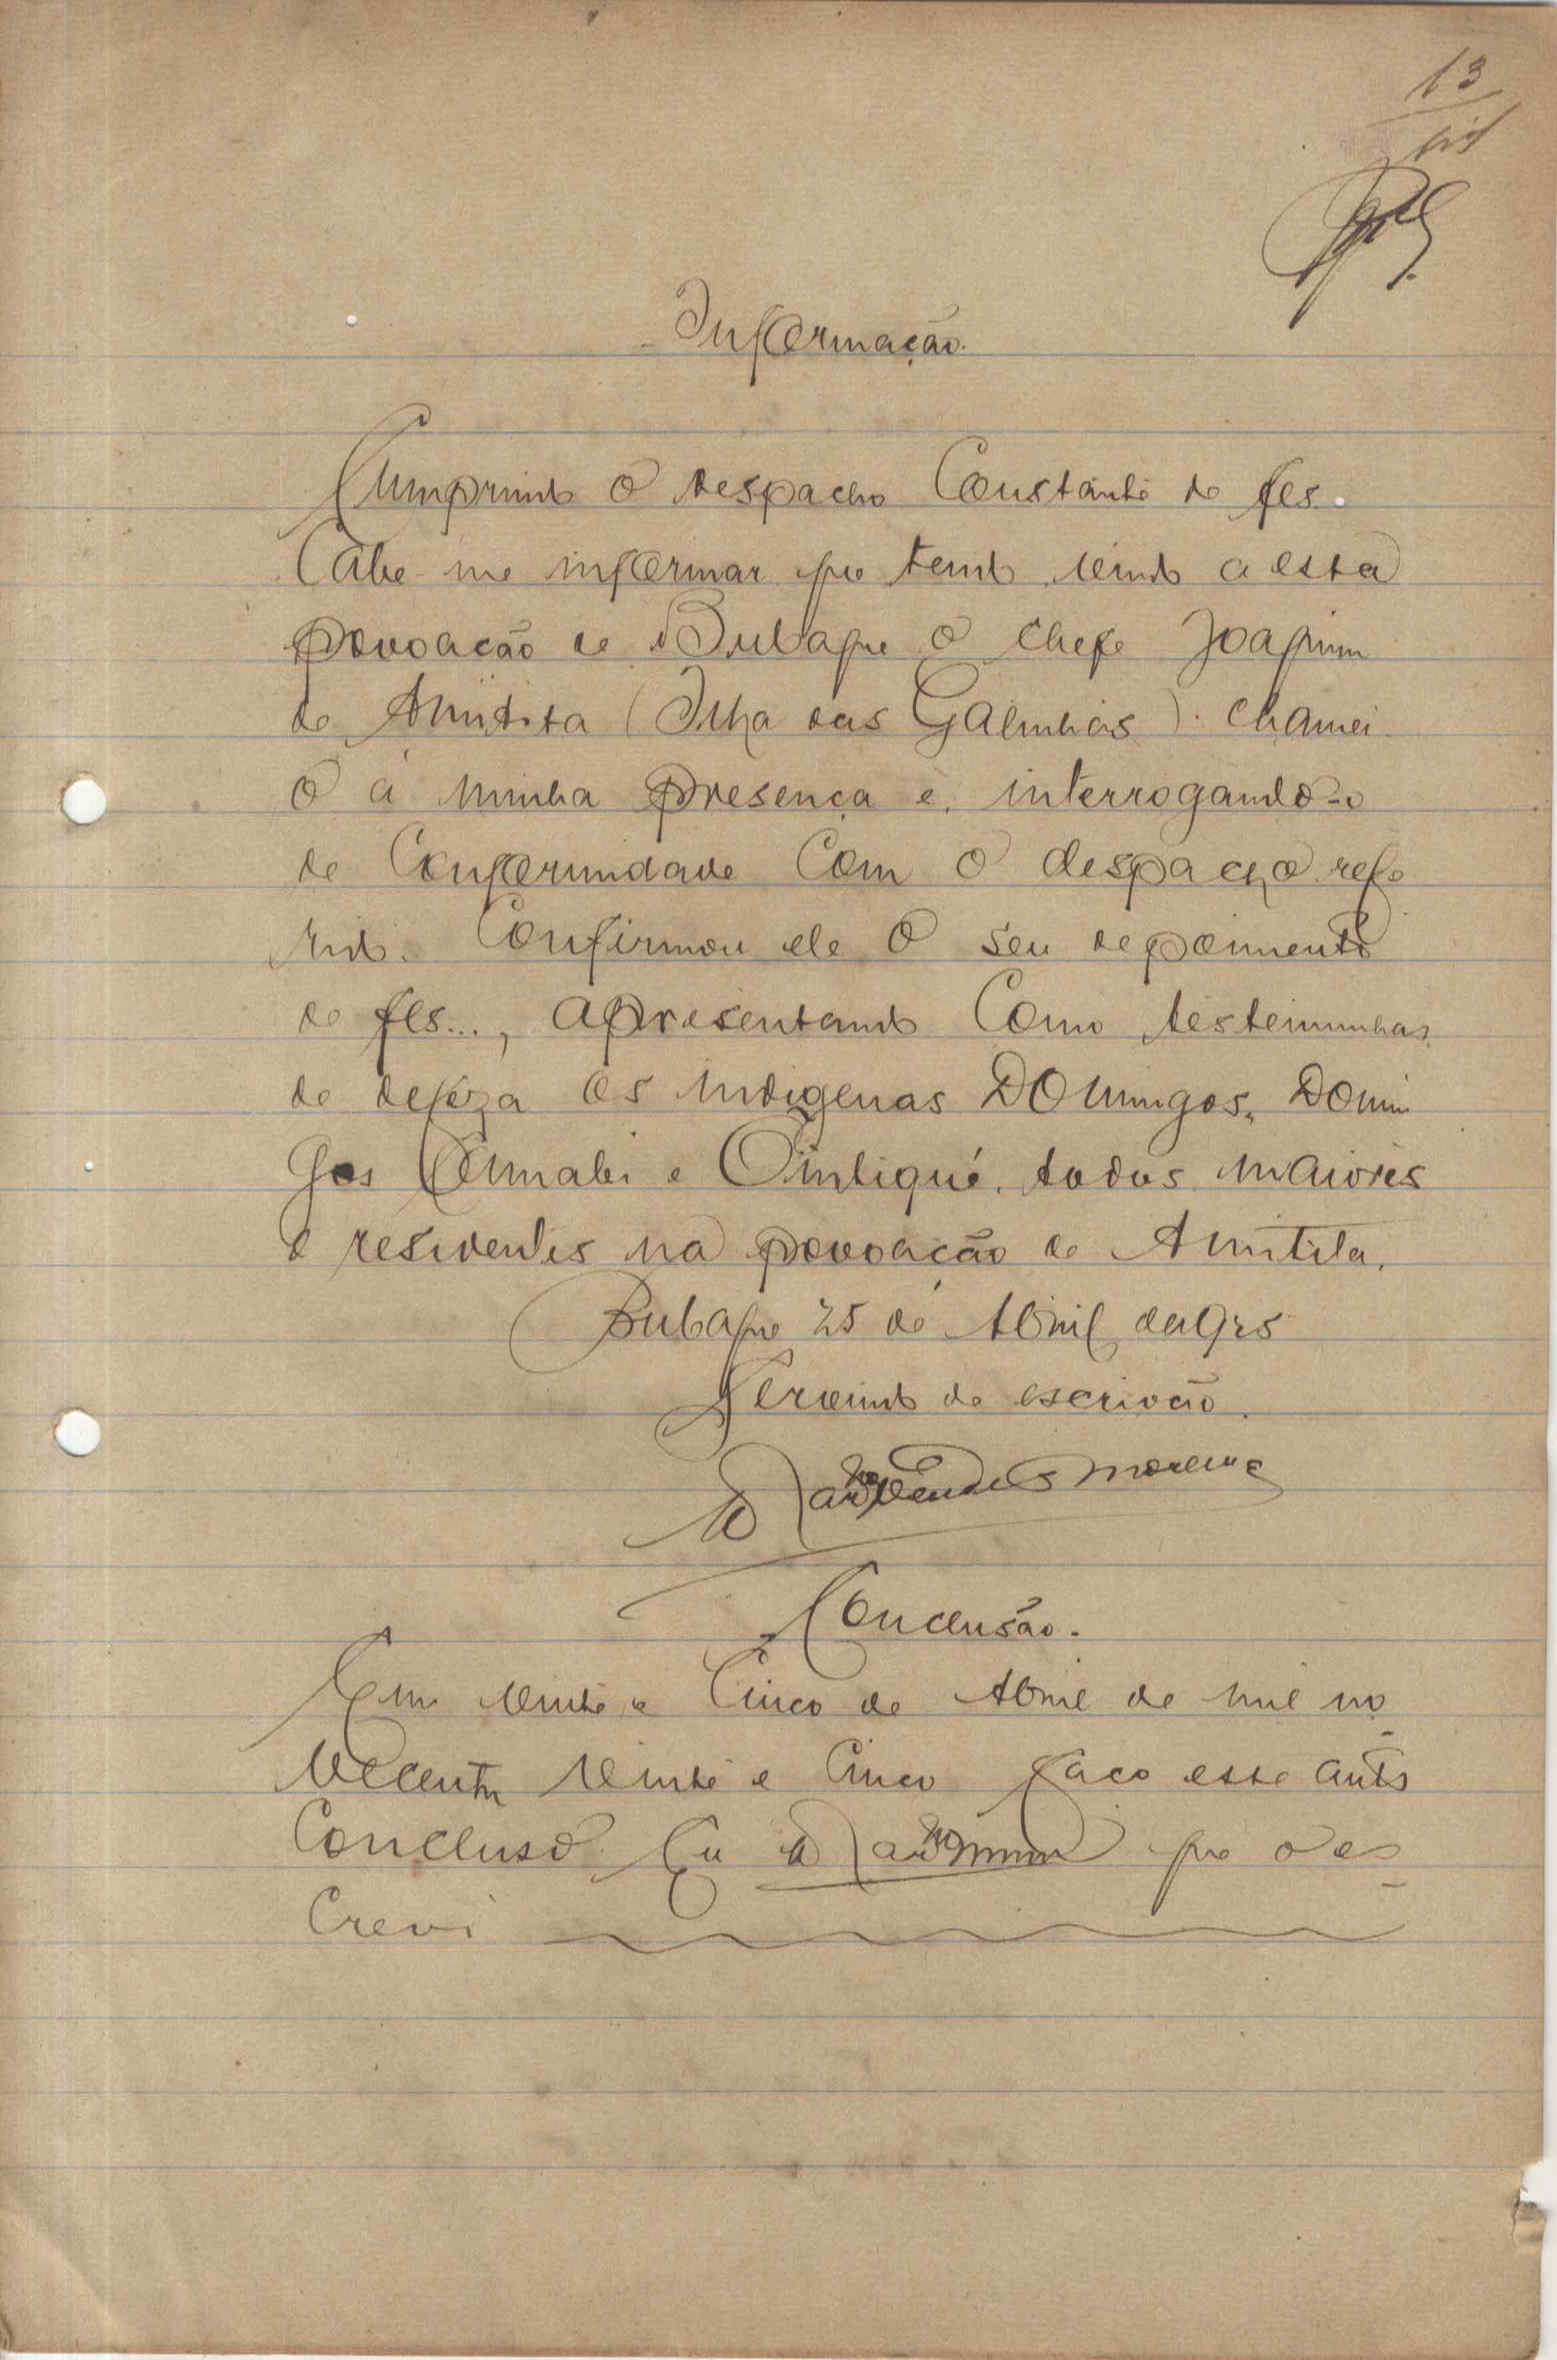 13
Informação.
Cumprindo o despacho Constante de fls.
Cabe-me informar que tendo vindo a esta
povoação de Bubaque o chefe Joaquim
de Amitita (Ilha das Galinhas). chamei
o á minha presença e, interrogando-o
de Conformidade Com o despacho refe
rido. Confirmou ele o seu depoimento
de fls..., apresentando Como testemunhas
de defeza os indigenas Domingos, Domin
gos e todos maiores
e residentes na povoação de Amitita.
Bubaque 25 de Abril de 1925
Servindo de escrivão.
Mendes Moreira
Conclusão.
Em vinte e Cinco de Abril de mil no-
vecentos vinte e Cinco faço este auto
Concluso. Eu que o es-
Crevi